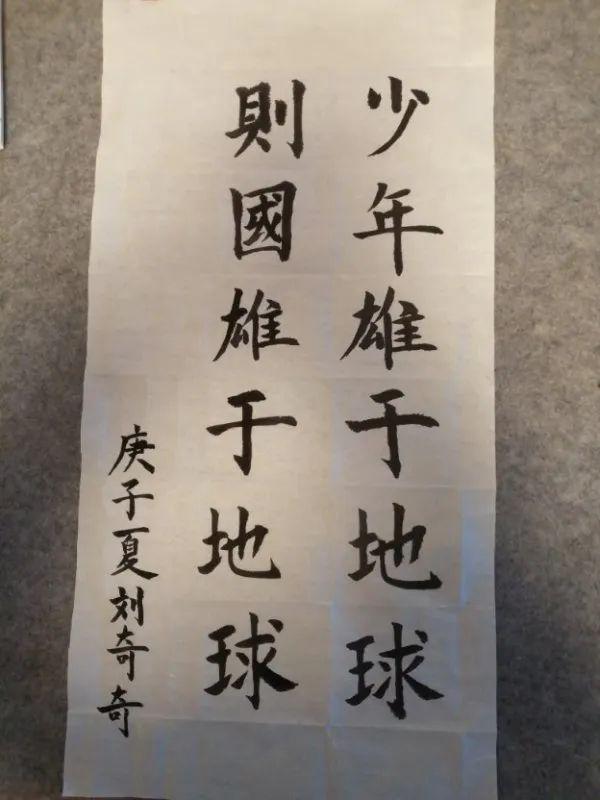 少年雄于地球
則國雄于地球
庚子夏刘奇奇